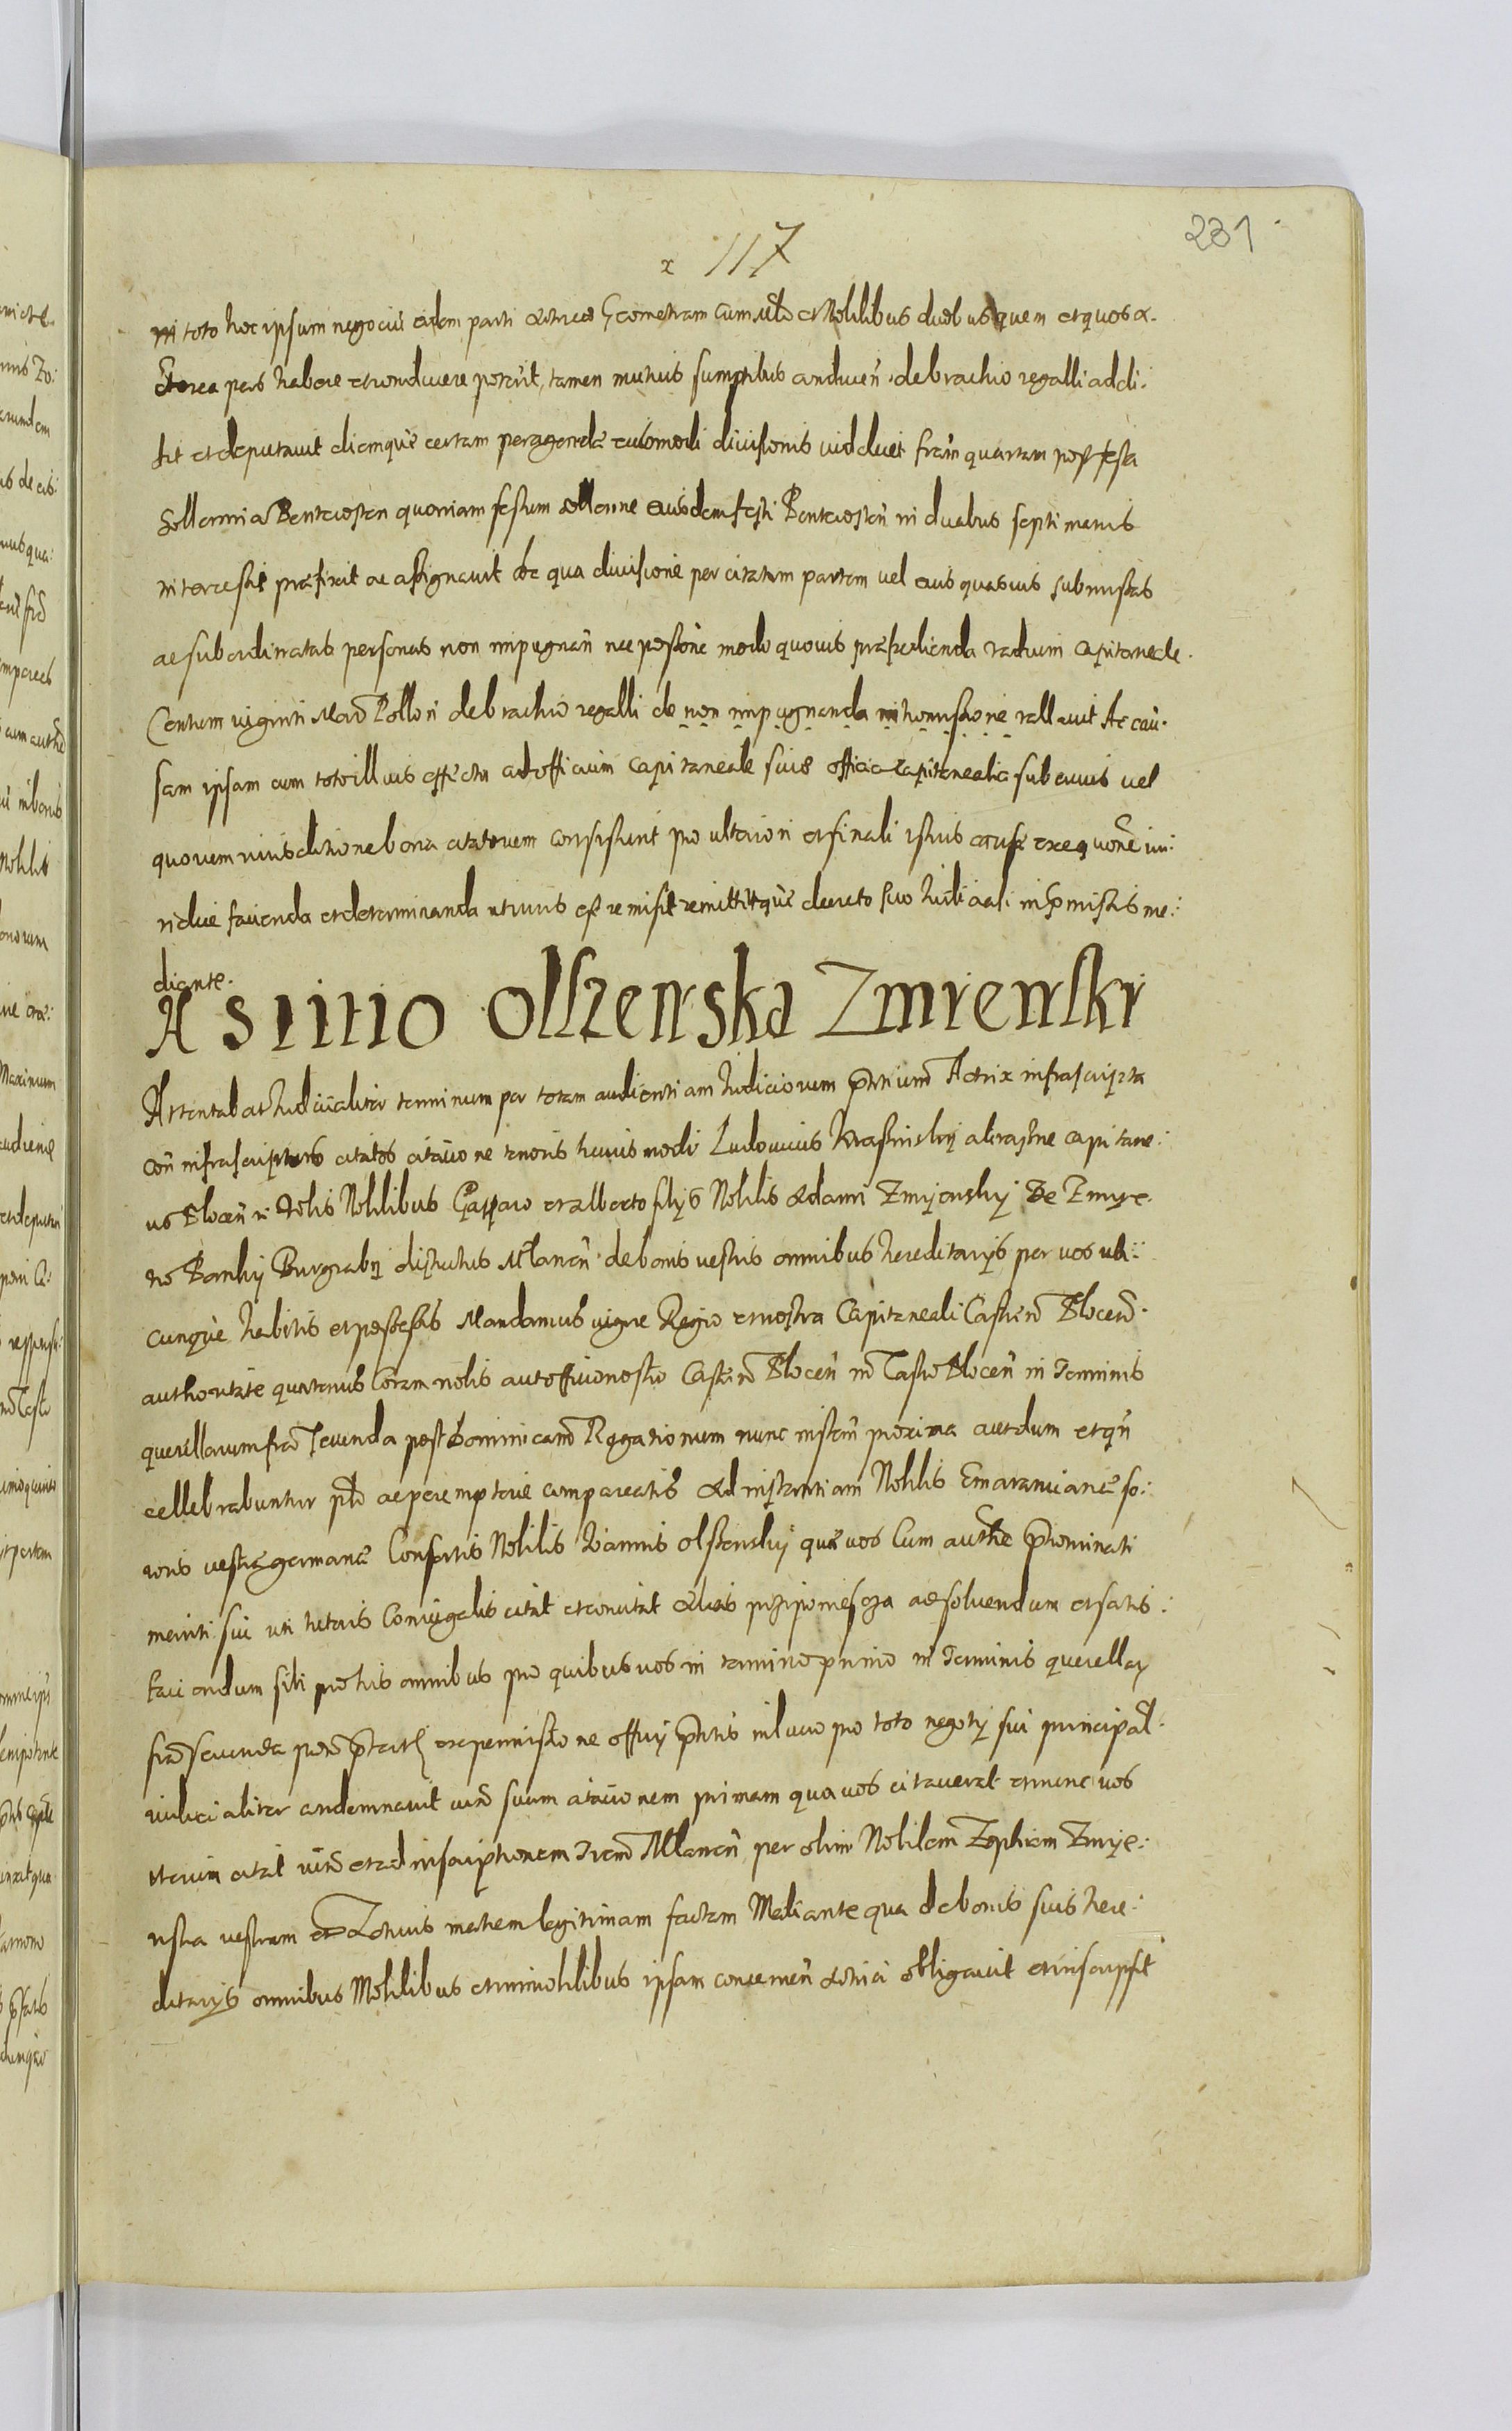 231
x 117
in toto hoc ipsum negociū eidem parti Actreæ Geometram cum Mtro et Nobilibus duobus quem et quos a.
ctorea pars habere et conducere poterit, tamen mutuis sumptibus conducen̄. de brachio regalli addi:
dit et deputavit diemque certam peragendæ eiusmodi divisionis videlicet feriam quartam post festa
Sollemnia Pentecosten quoniam festum sollenne eiusdem festi Pentecosten̄ in duabus septimanis
intercessit præfixit ac assignavit de qua divisione per citatam partem vel eius quasvis submissas
ac subordinatas personas non impugnan̄ nec possōne modo quovis præpedienda vadium capitaneale.
Centum viginti Marc Polloni de brachio regalli de non impugnanda intromissione vallavit Ac cau.
sam ipsam cum toto illius effectu ad officium capitaneale sive officia capitanealia sub cuius vel
quorum iurisditione bona citatorum consistunt pro ulteriori et finali istius causæ exequōne iu:
ridice facienda et determinanda ut iuris est remisit remittitque decreto suo iudiciali in præmissis me:
diante.
Astitio Olszewska Zmiewski
Attentabat Iudicialiter terminum per totam audientiam Iudiciorum pntium Actrix infrascripta
con̄ infrascriptos citatos citacione tenoris huiusmodi Ludovicus Krassinsky a Krasne capitane:
us Plocen̄ Vobis Nobilibus Gasparo et Alberto filys Nobilis Adami Zmyewsky De Zmye.
wo Ponky Burgraby districtus Mlaven̄ de bonis vestris omnibus hereditarys per vos ubi:
cunque habitis et possessis Mandamus vigore Regio et nostra Capitaneali Castren Plocen.
authoritate quatenus coram nobis aut officio nostro Castren Plocen̄ in Castro Plocen̄ in Terminis
querellarum fra secunda post Dominicam Rogationum nunc instan̄ proxima aut dum et qn̄
cellebrabuntur ptr ac peremptorie compareatis Ad instantiam Nobilis Emaranciane so:
roris vestræ germanæ Consortis Nobilis Ioannis Olszewsky quæ vos cum authte prænominati
mariti sui uti tutoris Coniugalis citat et convitat Alias przypomiesgza ad solvendum et satis:
faciendum sibi pro his omnibus pro quibus vos in termino primo in Terminis querellar
fra secunda ex permissione offcy pntis in lucro pro toto negoty sui principal.
iudicialiter condemnavit iux suum citacionem primam qua vos citaverat et nunc vos
iterum citat iux et ad inscriptionem Mlaven̄ per olim Nobilem Zophiam Zmye:
wska vestram et Actricis matrem legitimam factam Mediante qua de bonis suis here:
ditarys omnibus Mobilibus et immobilibus ipsam concernen̄ Actrici obligavit et inscripsit